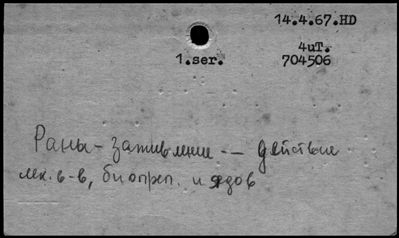 14.4.67.HD
4uT.
1.ser. 704506
Раны - заживление -- действие
лек. в-в, биопреп. и ядов